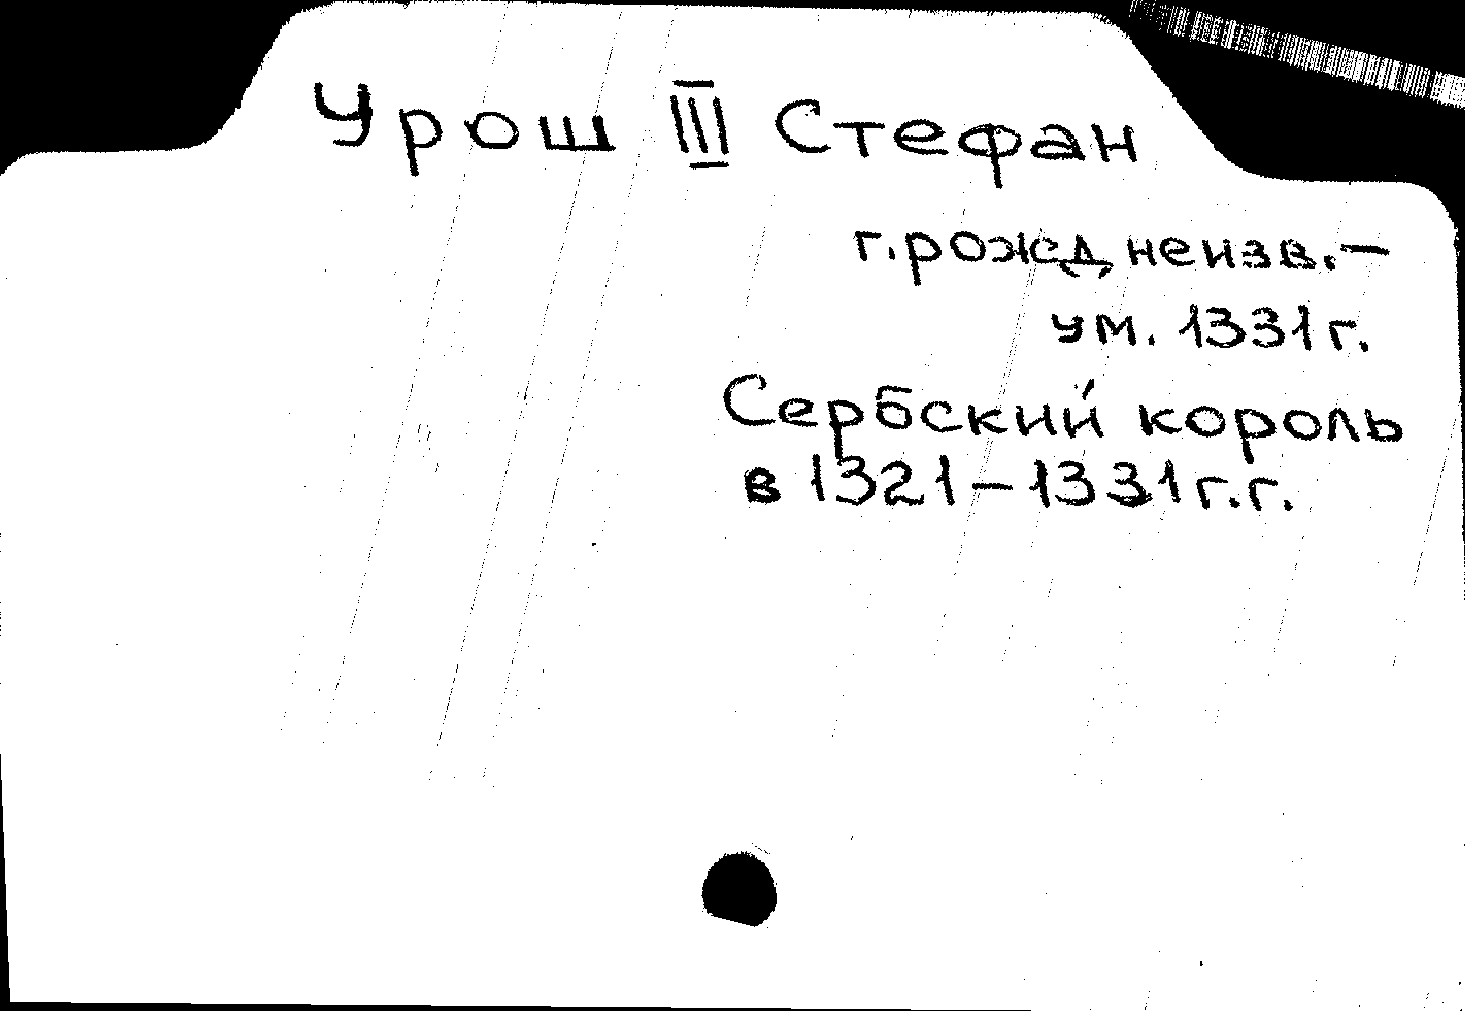 Урош III Стефан
г. рожд неизв. —
ум. 1331 г.
Сербский король
в 1321 – 1331 г.г.